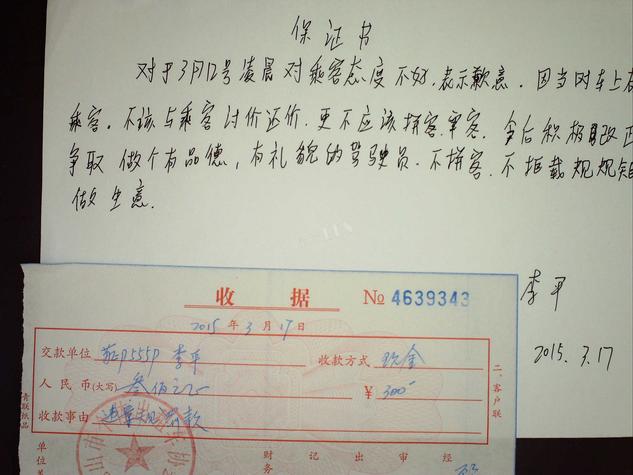 保证书
对于3月12号凌晨对乘客态度不好,表示歉意.因当时车上有
乘客.不该与乘客讨价还价.更不应该拼客.宰客.今后积极改正
争取做个有品德,有礼貌的驾驶员.不拼客.不拒载规规矩
做生意.
李平
2015.3.17
收据 № 4639343
2015年3月17日
交款单位 李平 收款方式 现金
人民币(大写) 叁佰元 ¥ 300
收款事由 违章罚款
二、客户联
青联纸品
山市
单位
财务 记 出 审 经